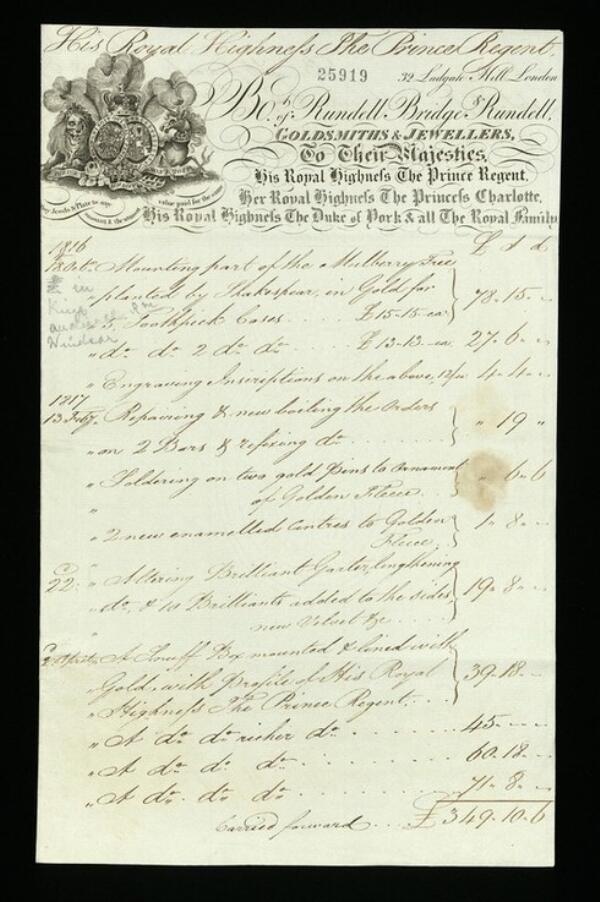 His Royal Highneſs The Prince Regent
25919 32 Ludgate Hill London
Bot. of Rundell Bridge & Rundell,
GOLDSMITHS & JEWELLERS,
To Their Majesties,
His Royal Highneſs The Prince Regent,
Her Royal Highneſs The Princeſs Charlotte,
His Royal Highneſs The Duke of York & all The Royal Family
Jewels & Plate to any amount & the utmost value paid for the same
£ s d
1816
18 Octr. Mounting part of the Mulberry Tree
" planted by Shakespear, in Gold for
5 Toothpick Cases £15-15-ea. 78-15-"
" do. do. 2 do. do. £13-13-ea. 27-6-"
in
King
Windsor
" Engraving Inscriptions on the above, 12/ea. 4-4-"
1817
13 Feby. Repairing & new boiling the Orders
" on 2 Bars & refixing do. " 19 "
" Soldering on two gold pins to Ornament
" of Golden Fleece " 6-6
" 2 new enamelled Centres to Golden
Fleece 1-8-"
22 " Altering Brilliant Garter, lengthening
" do. & 10 Brilliants added to the sides,
new Velvet &c 19-8-"
2 April A Snuff Box mounted & lined with
" Gold, with profile of His Royal
" Highneſs The Prince Regent 39-18-"
" A do. do. richer do. 45-"-"
" A do. do. do. 60-18-"
" A do. do. do. 71-8-"
Carried forward £349-10-6